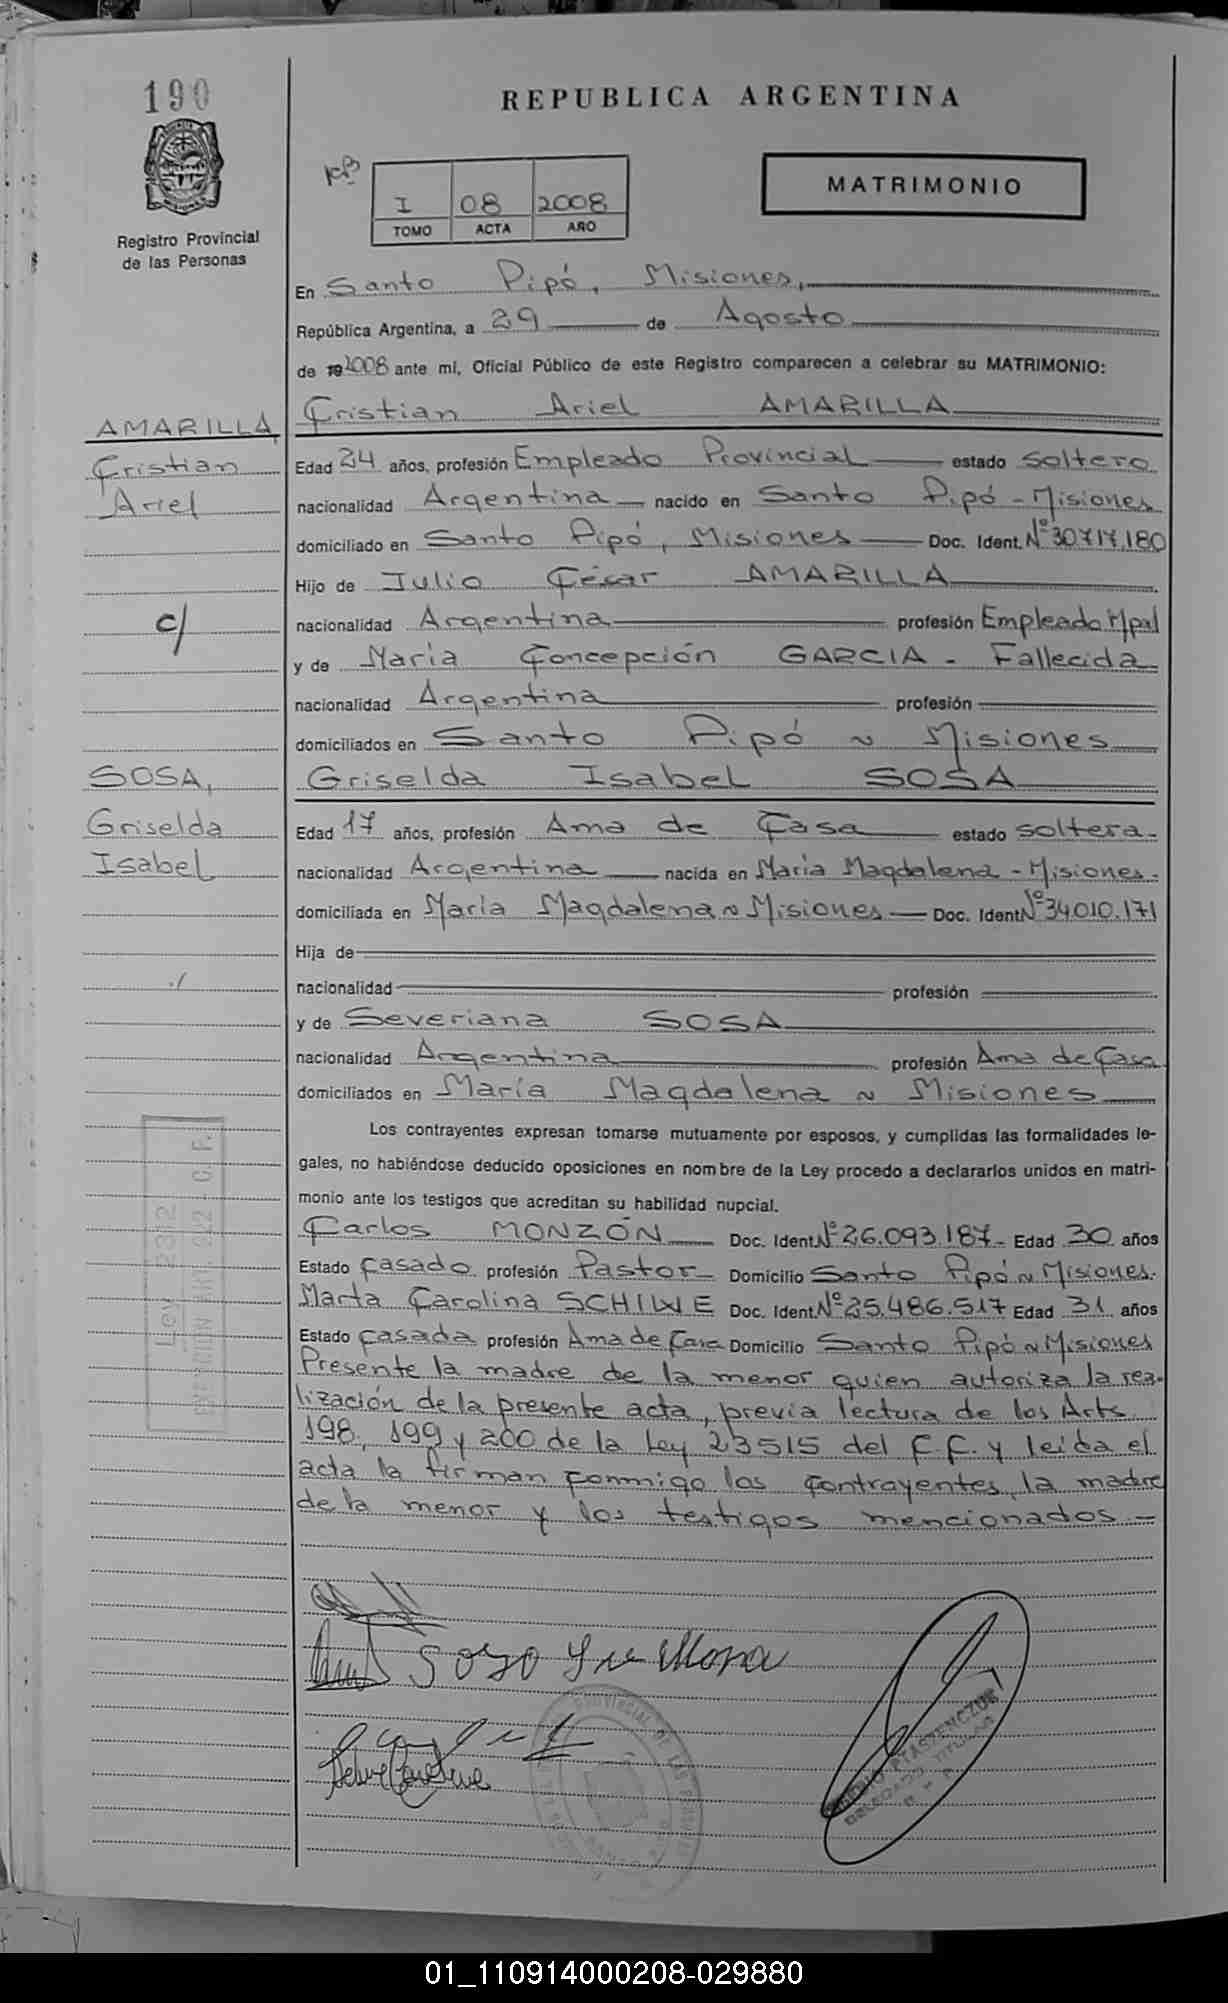 190
REPUBLICA ARGENTINA
I 08 2008
TOMO ACTA AÑO
MATRIMONIO
Registro Provincial
de las Personas
En Santo Pipó, Misiones,
República Argentina, a 29 de Agosto
de 19 2008 ante mí, Oficial Público de este Registro comparecen a celebrar su MATRIMONIO:
Cristian Ariel AMARILLA
AMARILLA,
Cristian
Ariel
Edad 24 años, profesión Empleado Provincial estado soltero
nacionalidad Argentina nacido en Santo Pipó - Misiones
domiciliado en Santo Pipó, Misiones Doc. Ident. Nº 30.717.180
Hijo de Julio César AMARILLA
c/
nacionalidad Argentina profesión Empleado Mpal
y de María Concepción GARCIA - Fallecida
nacionalidad Argentina profesión
domiciliados en Santo Pipó ~ Misiones
SOSA,
Griselda
Isabel
Griselda Isabel SOSA
Edad 17 años, profesión Ama de Casa estado soltera
nacionalidad Argentina nacida en María Magdalena - Misiones.
domiciliada en María Magdalena ~ Misiones Doc. Ident Nº 34.010.171
Hija de
./
nacionalidad profesión
y de Severiana SOSA
nacionalidad Argentina profesión Ama de Casa
domiciliados en María Magdalena ~ Misiones
Los contrayentes expresan tomarse mutuamente por esposos, y cumplidas las formalidades le-
gales, no habiéndose deducido oposiciones en nombre de la Ley procedo a declararlos unidos en matri-
monio ante los testigos que acreditan su habilidad nupcial.
Carlos MONZÓN Doc. Ident. Nº 26.093.187 - Edad 30 años
Estado casado profesión Pastor Domicilio Santo Pipó ~ Misiones.
Marta Carolina SCHIWE Doc. Ident. Nº 25.486.517 Edad 31 años
Estado casada profesión Ama de Casa Domicilio Santo Pipó ~ Misiones
Presente la madre de la menor quien autoriza la rea-
lización de la presente acta, previa lectura de los Arts
198, 199 y 200 de la Ley 23515 del C.C. y leída el
acta la firman conmigo los contrayentes, la madre
de la menor y los testigos mencionados -
Ley 2312
01_110914000208-029880